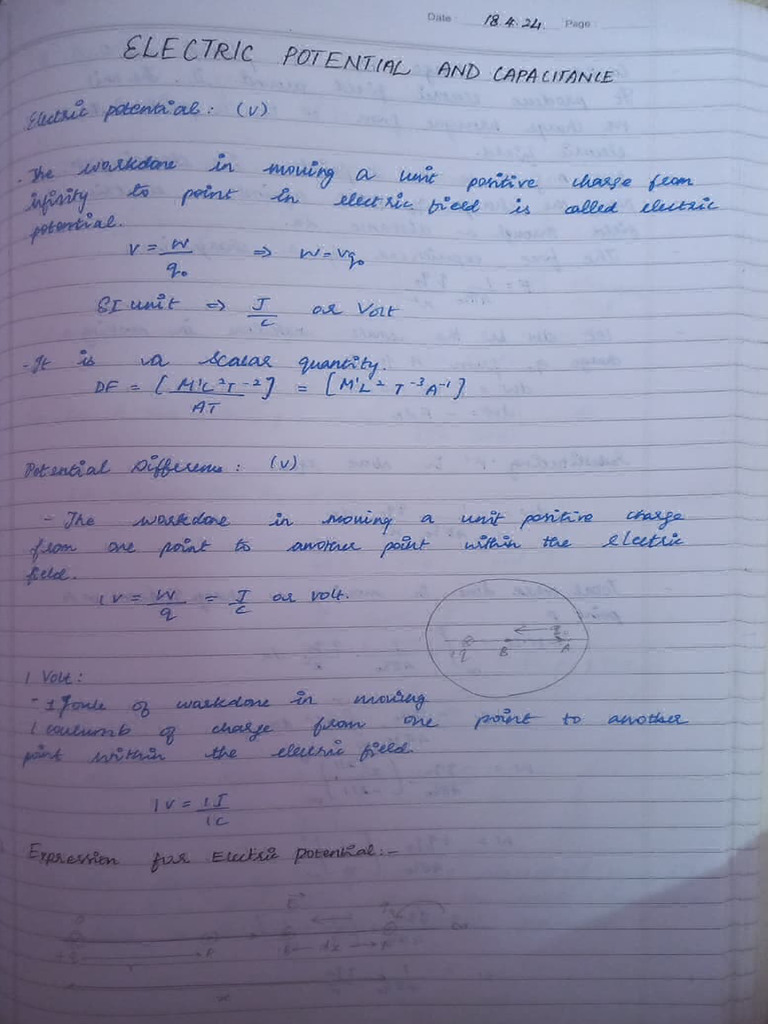 Date 18.4.24 Page
ELECTRIC POTENTIAL AND CAPACITANCE
Electric potential: (V)
. The workdone in moving a unit positive charge from
infisity to point in electric field is called electric
potential.
V = W/q₀ ⇒ W = Vq₀
SI unit ⇒ J/C or Volt
- It is a scalar quantity.
DF = [M¹L²T⁻²]/AT = [M¹L² T⁻³A⁻¹]
Potential Difference: (V)
- The workdone in moving a unit positive charge
from one point to another point within the electric
field.
1V = W/q = J/C or volt.
+q B A
1 Volt:
- 1 Joule of workdone in moving
1 coulumb of charge from one point to another
point within the electric field.
1V = 1J/1C
Expression for Electric potential:-